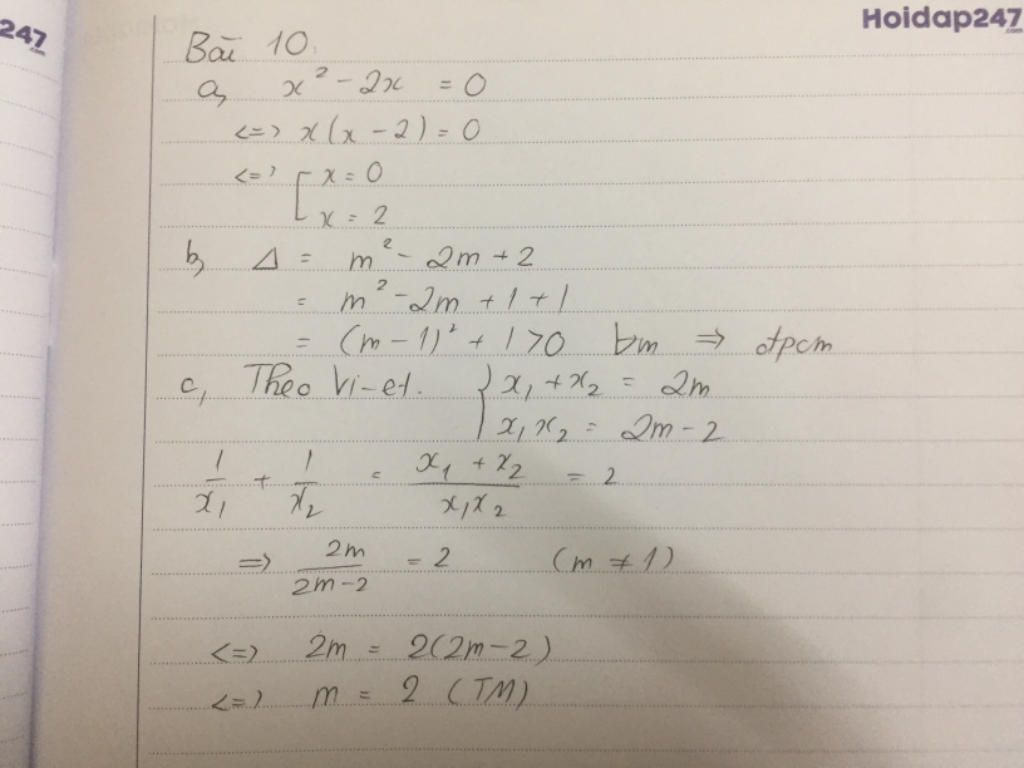 247
.com
Hoidap247
.com
Bài 10.
a, x² - 2x = 0
<=> x(x - 2) = 0
<=> [ x = 0
x = 2
b, Δ = m² - 2m + 2
= m² - 2m + 1 + 1
= (m - 1)² + 1 > 0 ∀m => đpcm
c, Theo Vi-et. { x₁ + x₂ = 2m
x₁x₂ = 2m - 2
1/x₁ + 1/x₂ = (x₁ + x₂)/(x₁x₂) = 2
=> 2m/(2m - 2) = 2 (m ≠ 1)
<=> 2m = 2(2m - 2)
<=> m = 2 (TM)